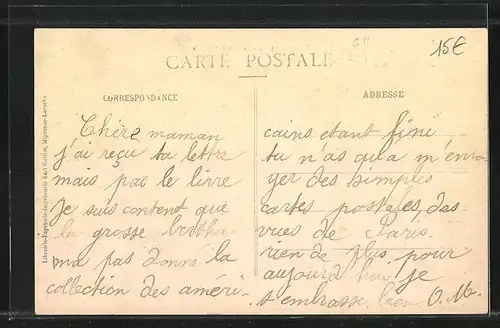 15€
CARTE POSTALE
CORRESPONDANCE
ADRESSE
Chère maman
j'ai reçu ta lettre
mais pas le livre
Je suis content que
la grosse bertha
m'a pas donné la
collection des améri-
cains étant fini
tu n'as qu'a m'envo
yer des simples
cartes postales des
vues de Paris.
rien de plus pour
aujourd hui je
t'embrasse bien O. M.